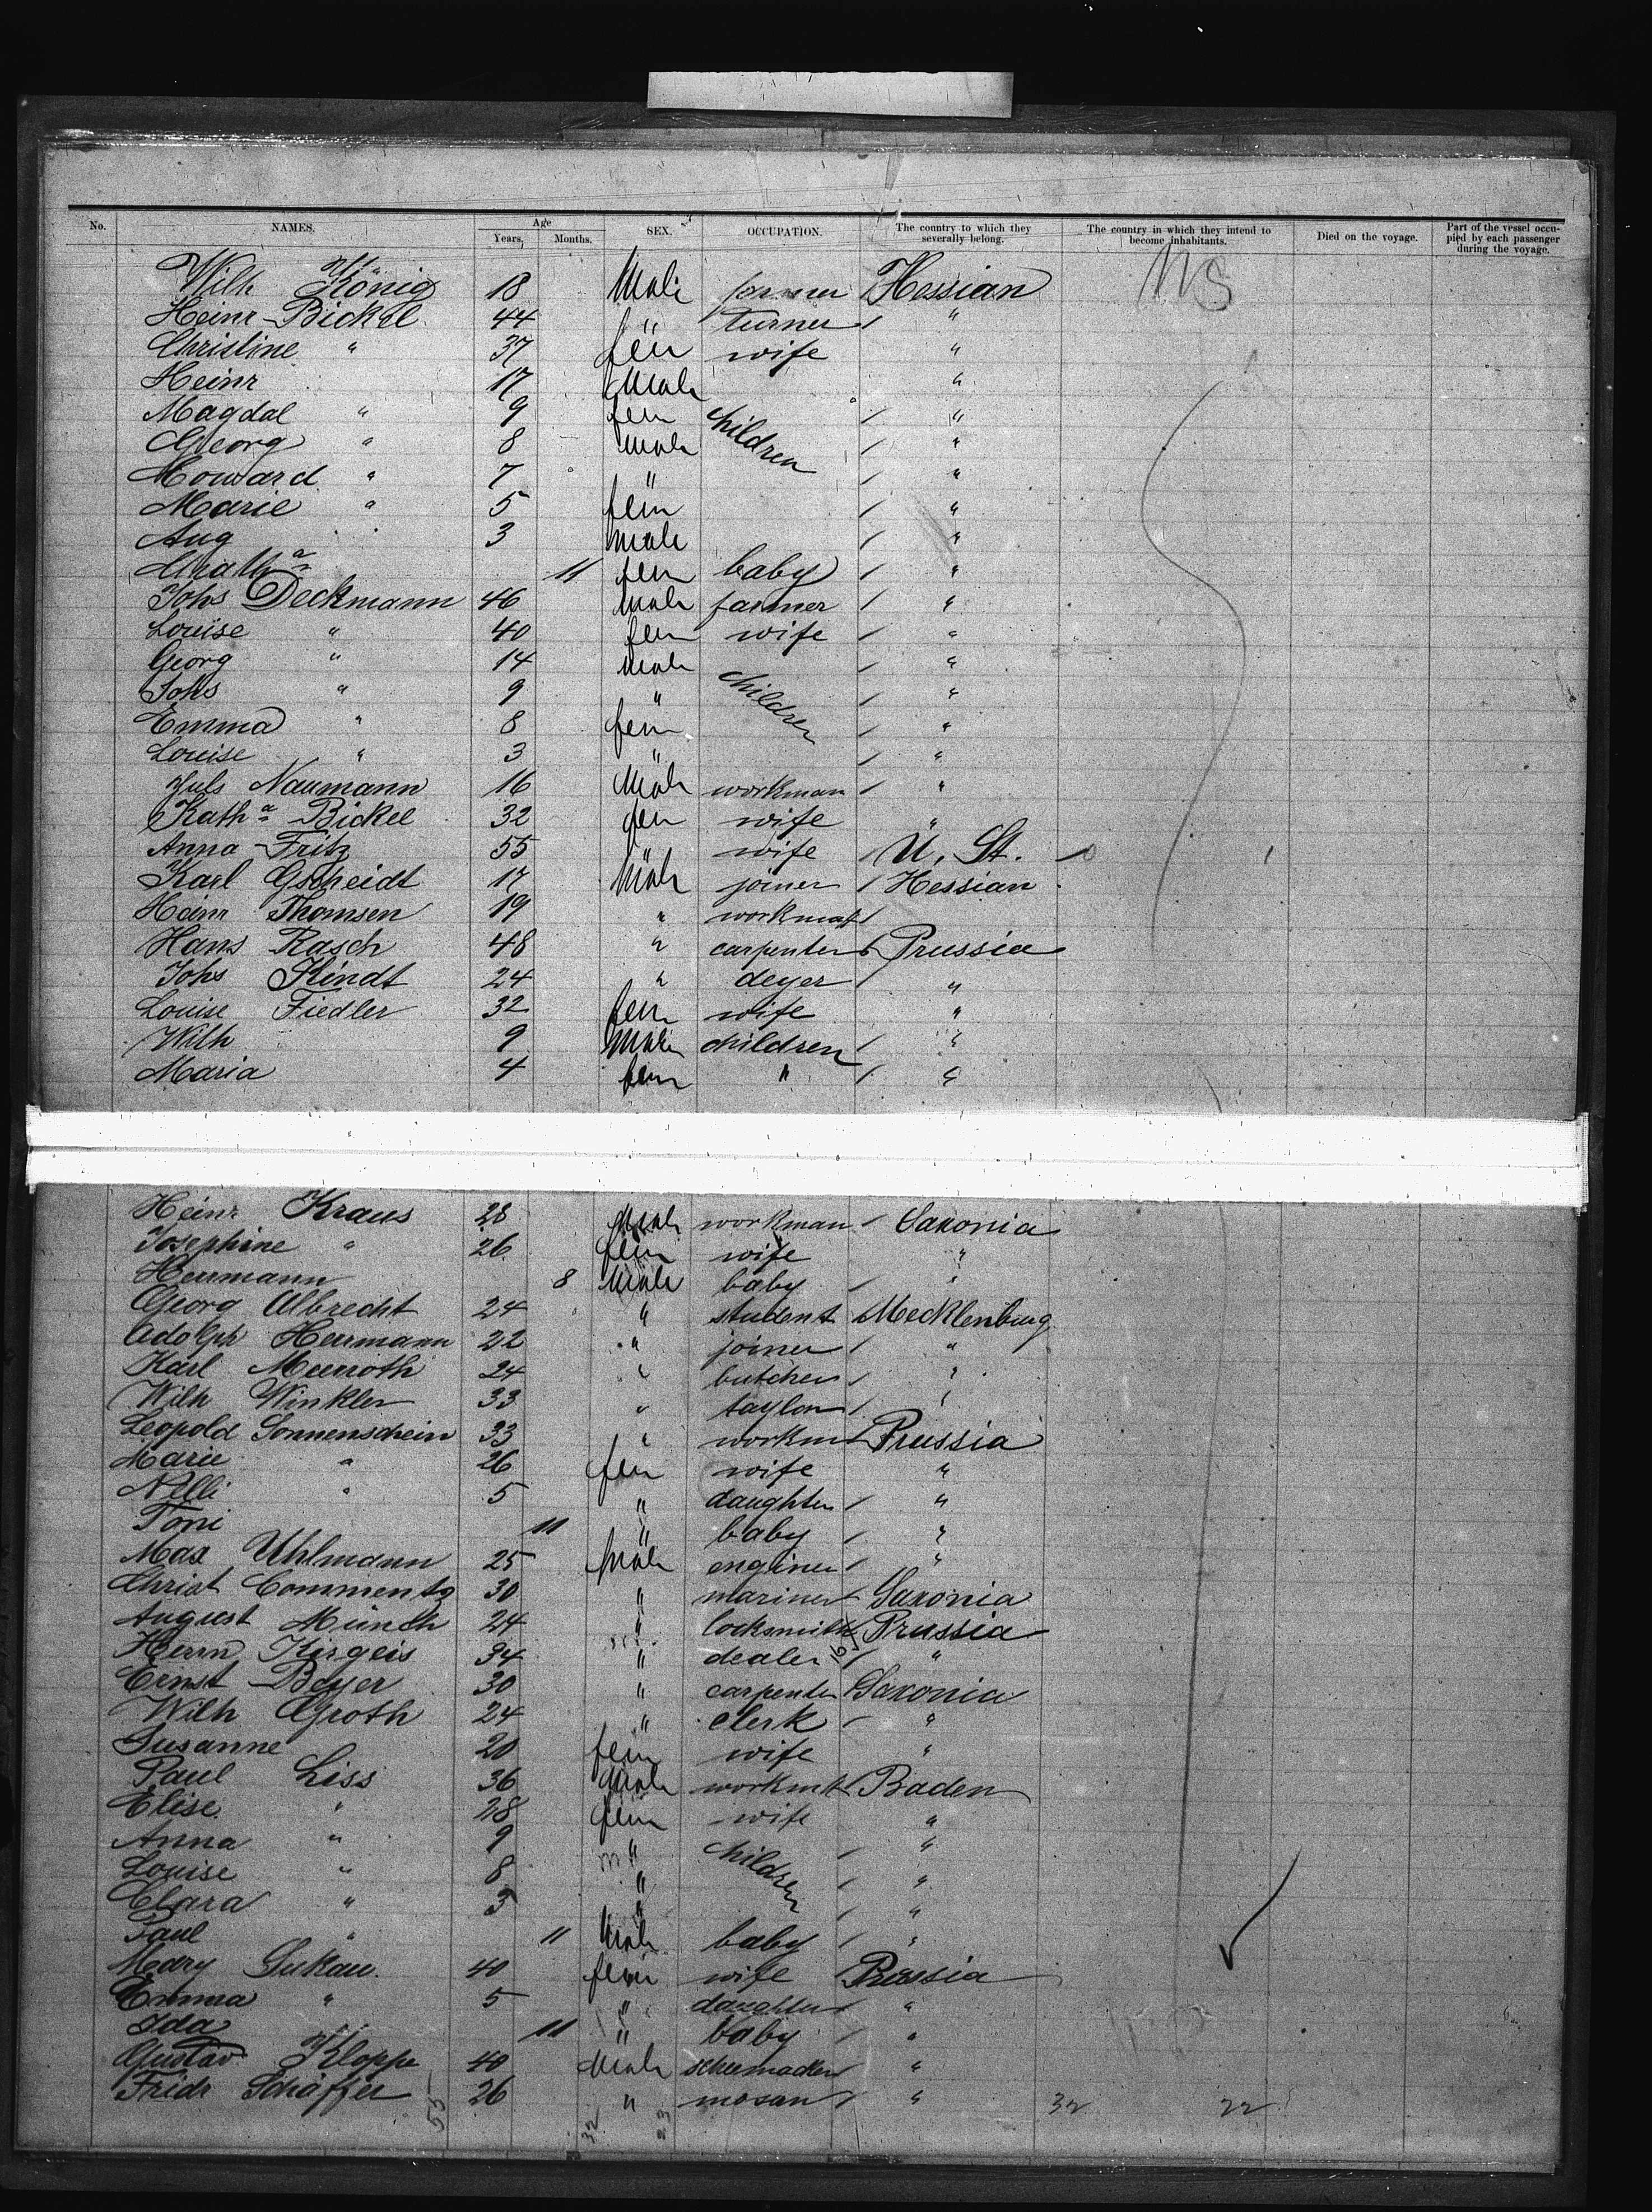 No. NAMES. Age Years. Months. SEX. OCCUPATION. The country to which they severally belong. The country in which they intend to become inhabitants. Died on the voyage. Part of the vessel occupied by each passenger during the voyage.
Wilh König 18 Male farmer Hessian US
Heinr Bickel 44 " turner "
Christine " 37 fem wife "
Heinr 17 Male "
Magdal " 9 fem children "
Georg " 8 Male "
Howard " 7 " "
Marie " 5 fem "
Aug 3 male "
11 fem baby "
Johs Deckmann 46 Male farmer "
Louise " 40 fem wife "
Georg " 14 Male "
Johs " 9 " children "
Emma " 8 fem "
Louise " 3 " "
Juls Naumann 16 Male workman "
Katha Bickel 32 fem wife "
Anna Fritz 55 " wife U. St.
Karl Gscheidt 17 Male joiner Hessian
Heinr Thomsen 19 " workman
Hans Rasch 48 " carpenter Prussia
Johs Kindt 24 " deyer "
Louise Fiedler 32 fem wife "
Wilh 9 Male children "
Maria 4 fem " "
Heinr Kraus 28 Male workman Saxonia
Josephine " 26 fem wife "
Herrmann 8 Male baby "
Georg Albrecht 24 " student Mecklenburg
Adolph Herrmann 22 " joiner "
Karl 24 " butcher "
Wilh Winkler 33 " taylor "
Leopold Sonnenschein 33 " workm Prussia
Marie " 26 fem wife "
Nelli " 5 " daughter "
Toni 11 " baby "
Max Uhlmann 25 Male enginer "
Christ Commentz 30 " mariner Saxonia
August Münch 24 " locksmith Prussia
Herm Kirgeis 34 " dealer "
Ernst Beyer 30 " carpenter Saxonia
Wilh Groth 24 " clerk "
Susanne 20 fem wife "
Paul Liss 36 Male workm Baden
Elise " 28 fem wife "
Anna " 9 " children "
Louise " 8 " "
Clara " 3 " "
Paul " 11 Male baby "
Mary Sukau 40 fem wife Prussia
Emma " 5 " daughter "
Ida 11 " baby "
Gustav Kloppe 40 Male "
Fridr Schäffer 26 " mosan " 32 22
55 32 23